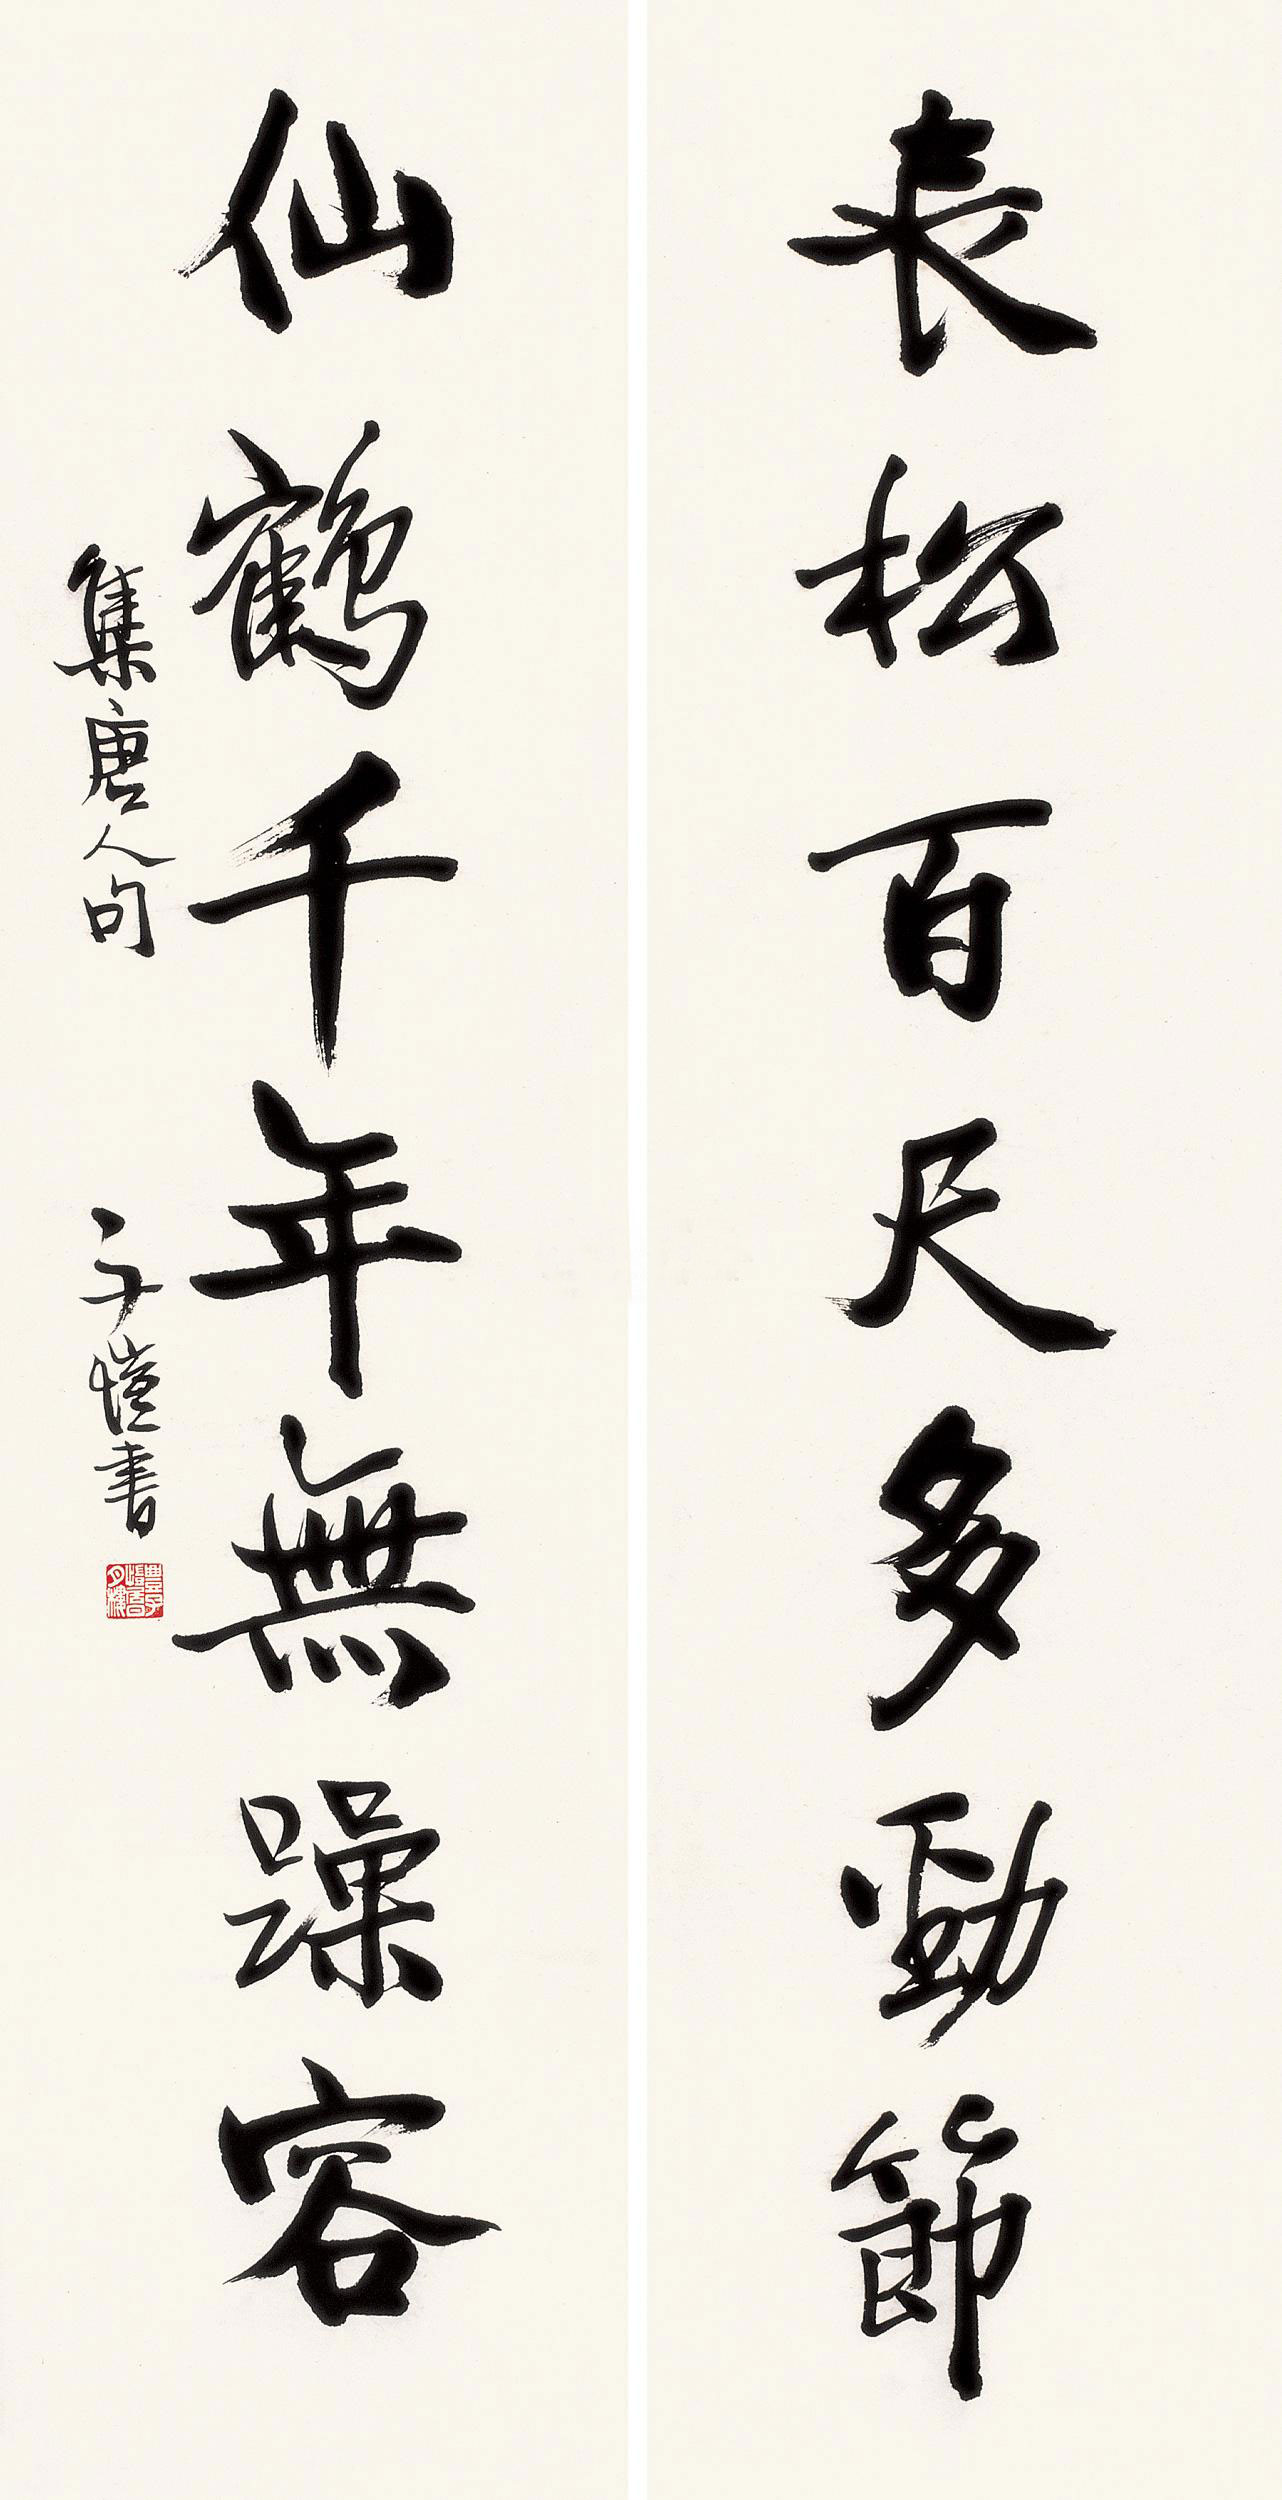 長松百尺多勁節
仙鶴千年無躁容
集唐人句
子愷書